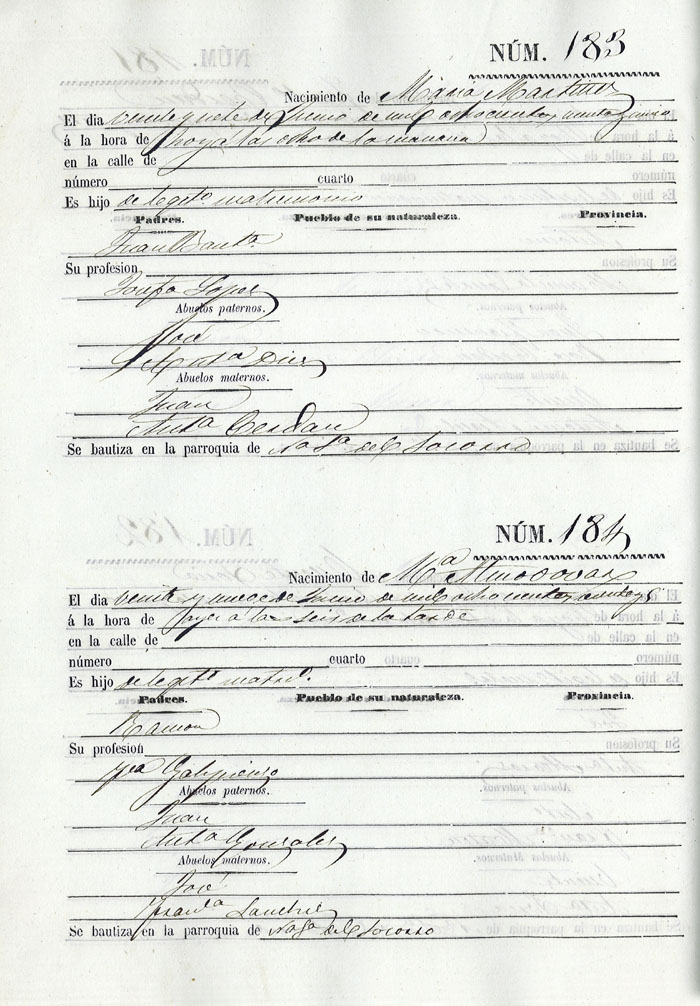 NÚM. 183
Nacimiento de Maria Martinez
El dia veinte y siete de Junio de mil ochocientos
á la hora de hoy a las ocho de la mañana
en la calle de
número cuarto
Es hijo de legit.º matrimonio
Padres. Pueblo de su naturaleza. Provincia.
Su profesion
Josefa Lopez
Abuelos paternos.
José
Diez
Abuelos maternos.
Juan
Ant.ª Cerdan
Se bautiza en la parroquia de Na Sa del Socorro
NÚM. 184
Nacimiento de M.ª Almodovar
El dia veinte y nueve de Junio de mil ochocientos
á la hora de ayer a las seis de la tarde
en la calle de
número cuarto
Es hijo de legit.º matri.º
Padres. Pueblo de su naturaleza. Provincia.
Ramon
Su profesion
Galipienzo
Abuelos paternos.
Juan
Ant.ª Gonzalez
Abuelos maternos.
José
Fran.ca Sanchez
Se bautiza en la parroquia de Na Sa del Socorro